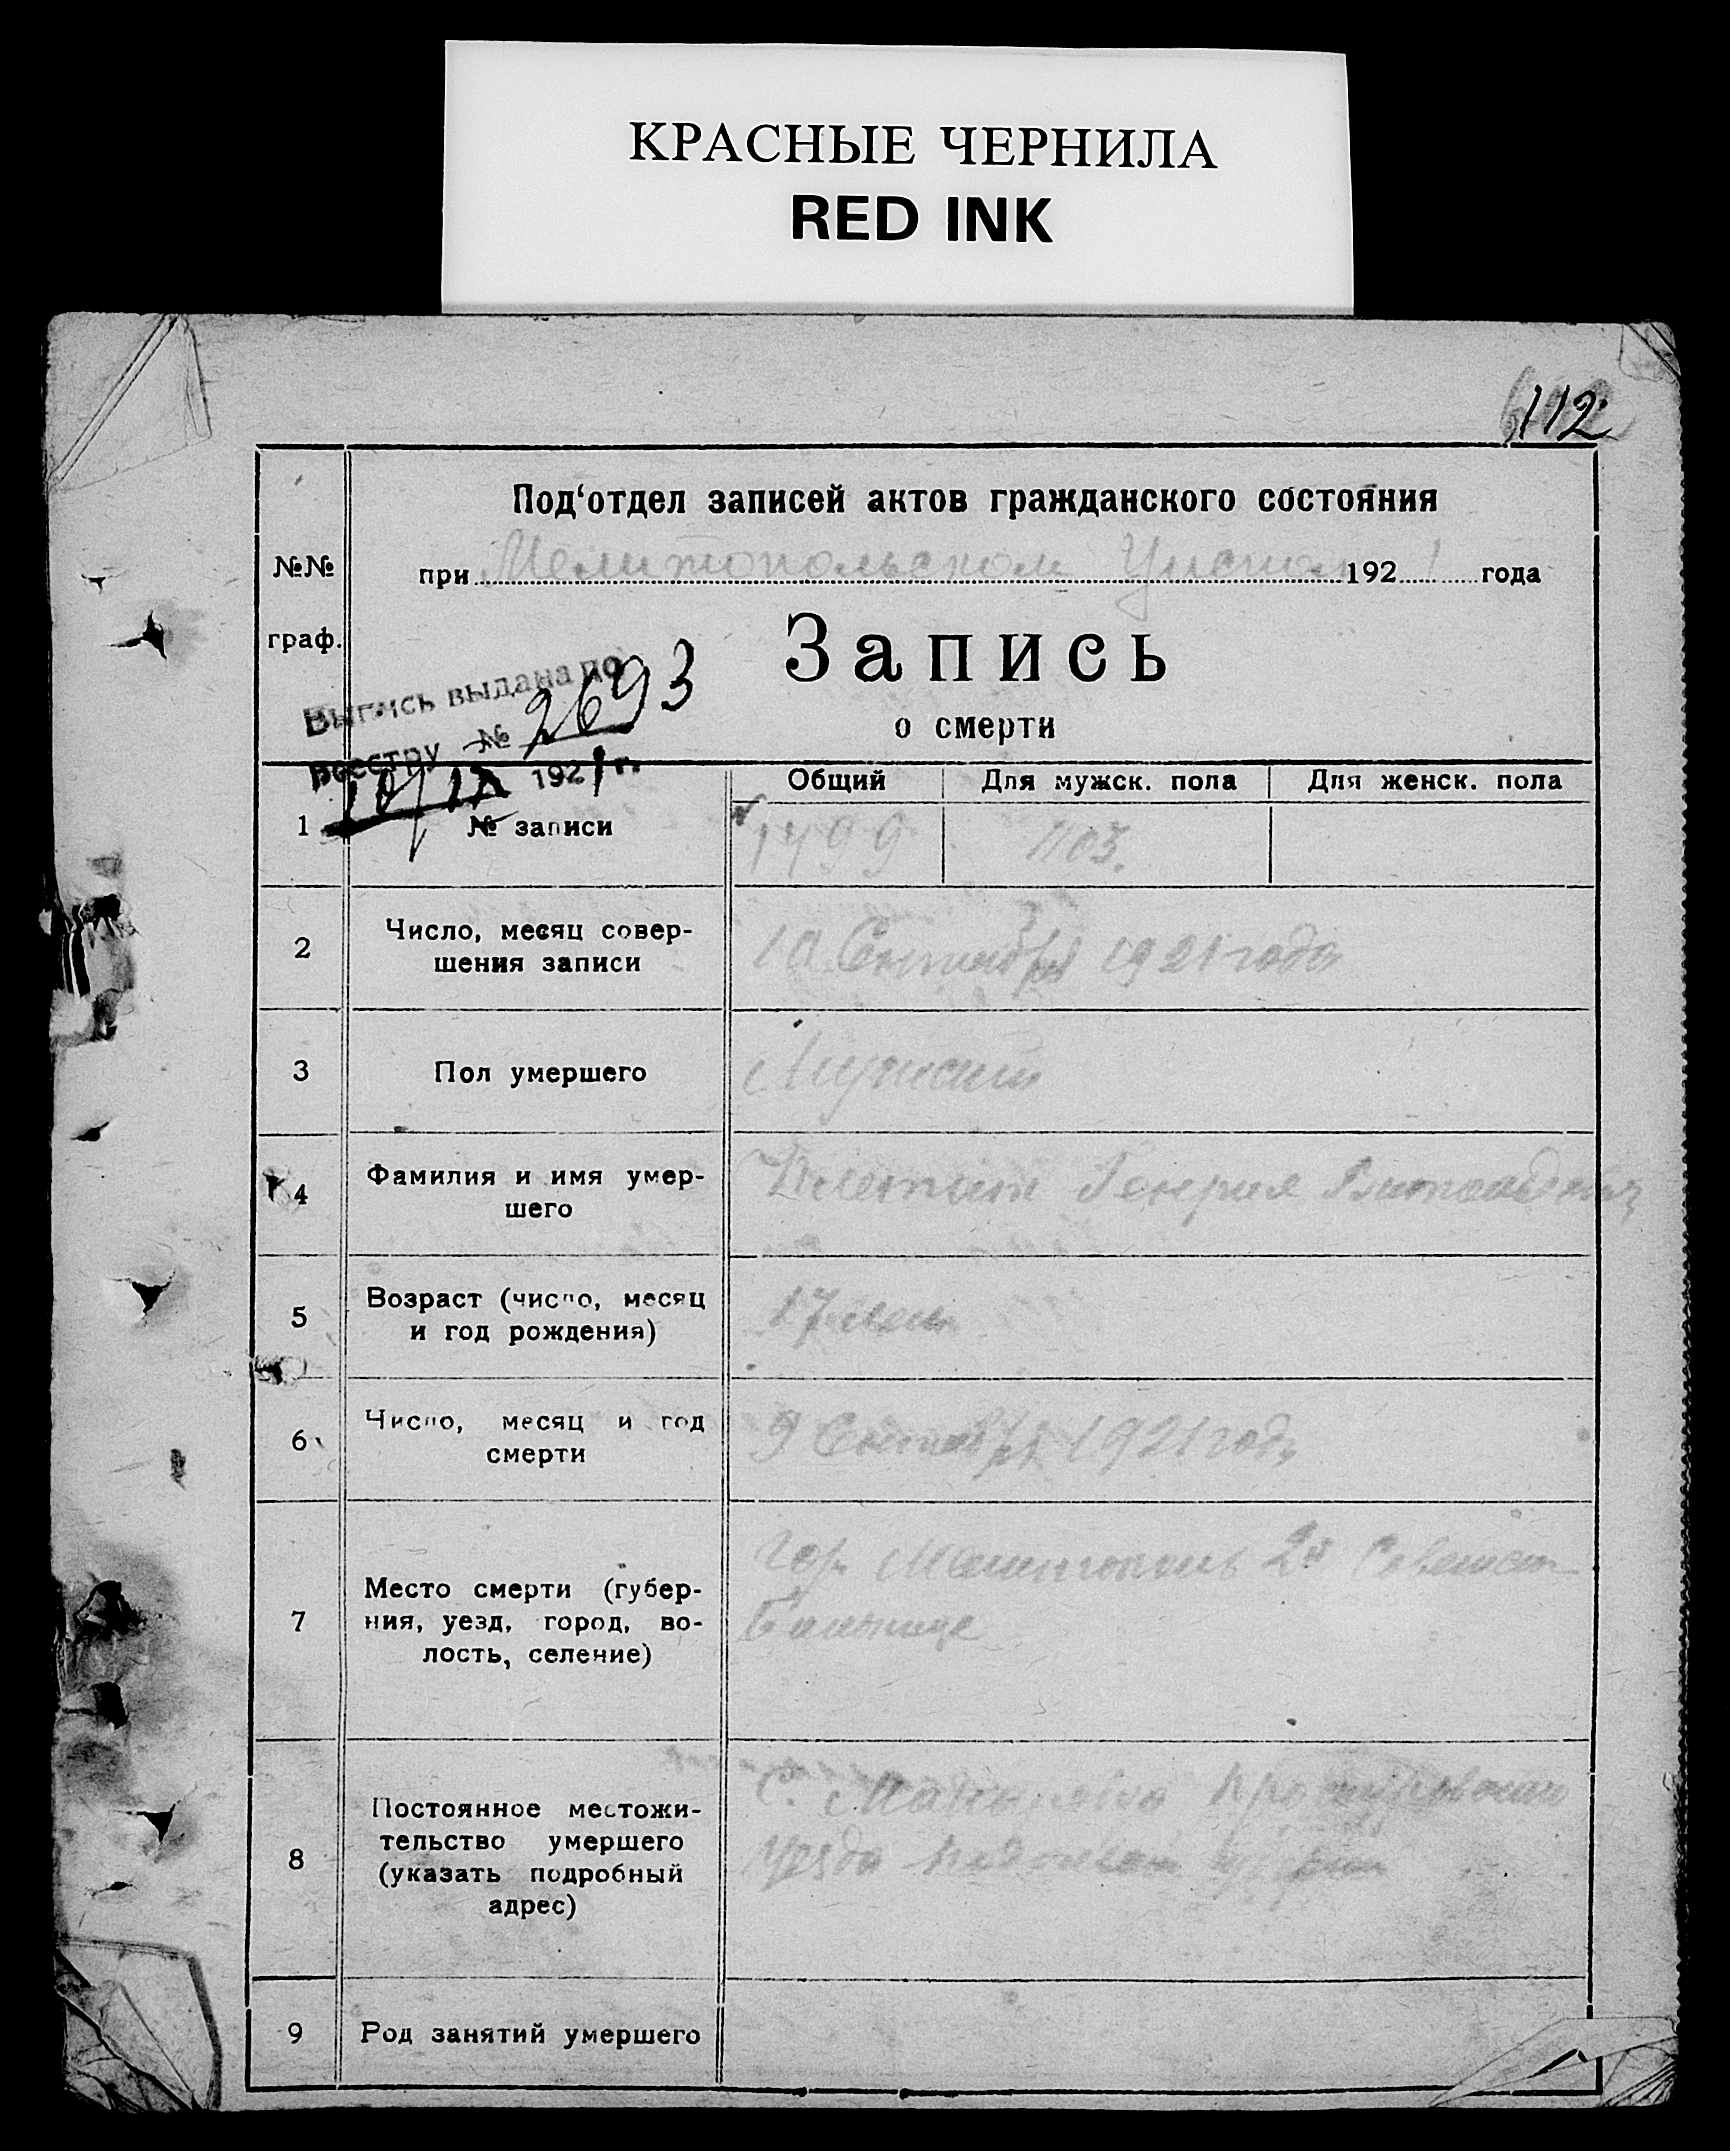 КРАСНЫЕ ЧЕРНИЛА
RED INK
112
Под‘отдел записей актов гражданского состояния
№№
граф.
при Мелитопольском 1921 года
Запись
о смерти
Выпись выдана по
реестру № 2693
10/IX 1921 г.
Общий Для мужск. пола Для женск. пола
1 № записи 1499 1103.
2 Число, месяц совер-
шения записи
10 Сентября 1921 года
3 Пол умершего Мужской
4 Фамилия и имя умер-
шего
Генрих
5 Возраст (число, месяц
и год рождения)
17 лет
6 Число, месяц и год
смерти
9 Сентября 1921 года
7 Место смерти (губер-
ния, уезд, город, во-
лость, селение)
Гор. Мелитополь 2й Советской
Больнице
8 Постоянное местожи-
тельство умершего
(указать подробный
адрес)
С.
уезда
9 Род занятий умершего